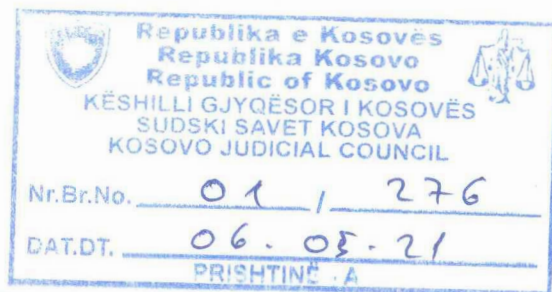 Republika e Kosovës
Republika Kosovo
Republic of Kosovo
KËSHILLI GJYQËSOR I KOSOVËS
SUDSKI SAVET KOSOVA
KOSOVO JUDICIAL COUNCIL
Nr.Br.No. 01 / 276
DAT.DT. 06.05.21
PRISHTINË - A